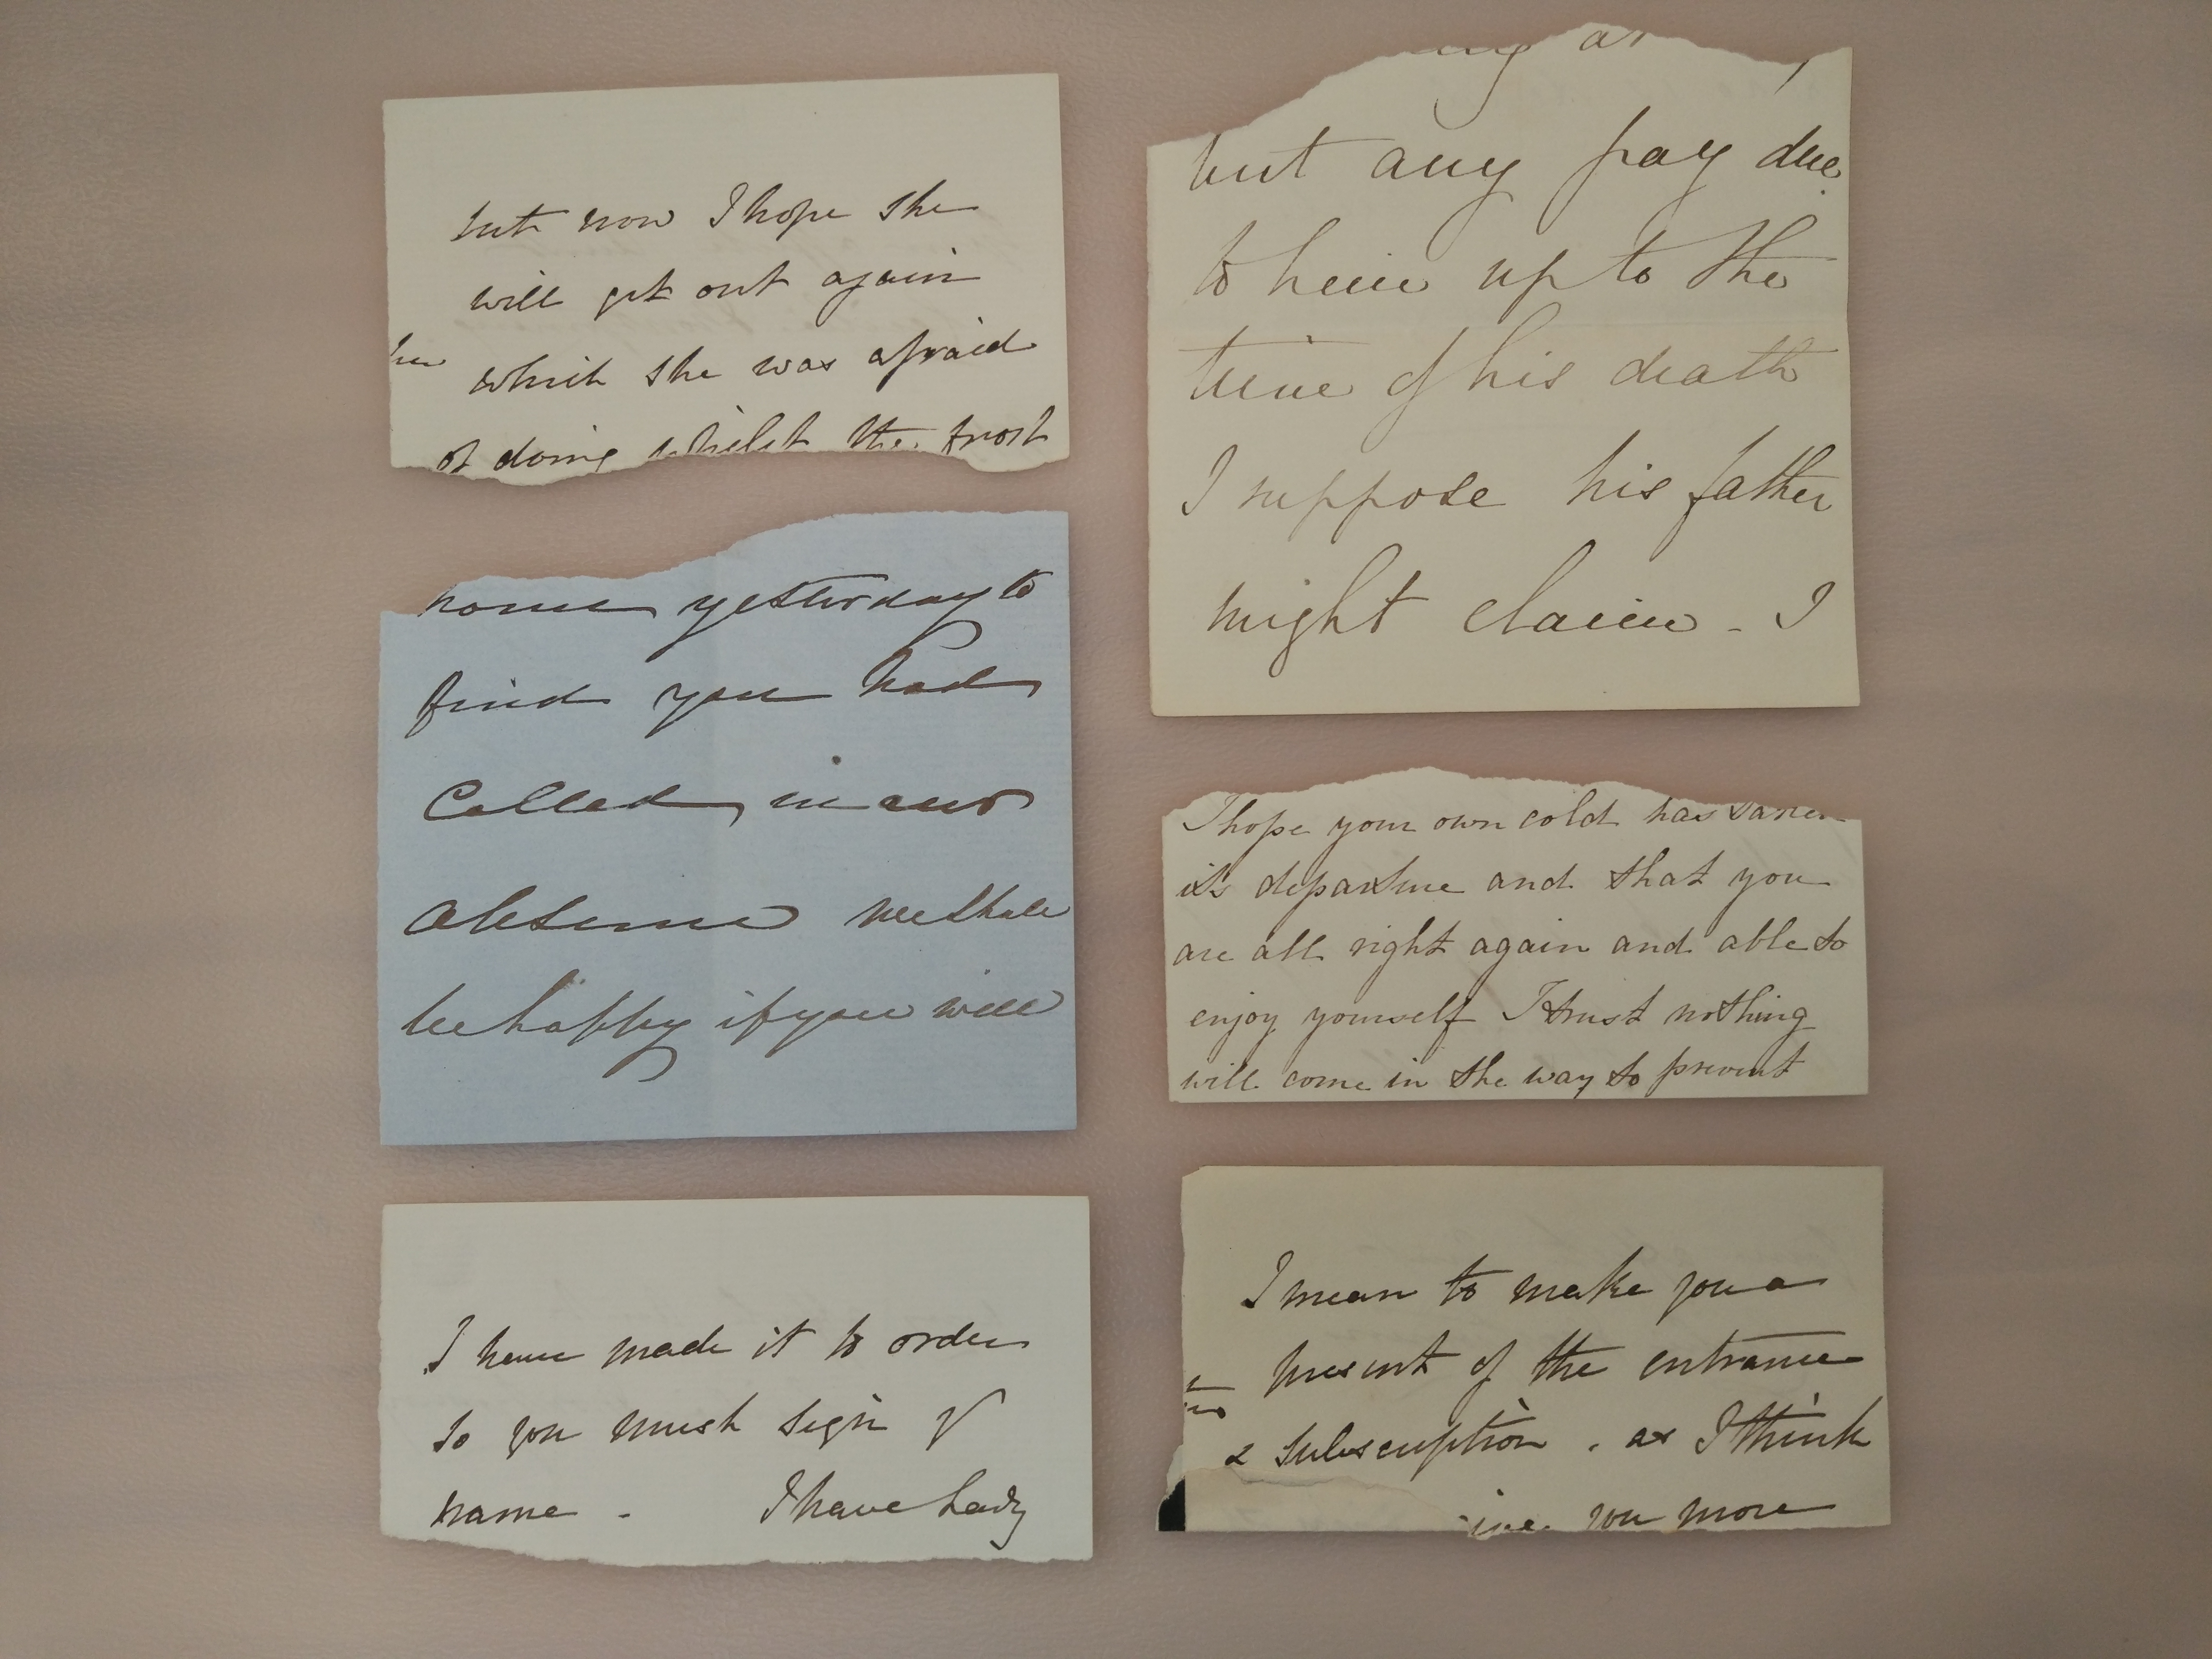 but now I hope she
will get out again
which she was afraid
of doing whilst the frost
home yesterday to
find you had
Called in our
absence we shall
be happy if you will
I have made it to order
so you must sign yr
name - I have Lady
but any pay due
to him up to the
time of his death
I suppose his father
might claim - I
I hope your own cold has taken
its departure and that you
are all right again and able to
enjoy yourself I trust nothing
will come in the way to prevent
I mean to make you a
present of the entrance
& subscription . as I think
you more